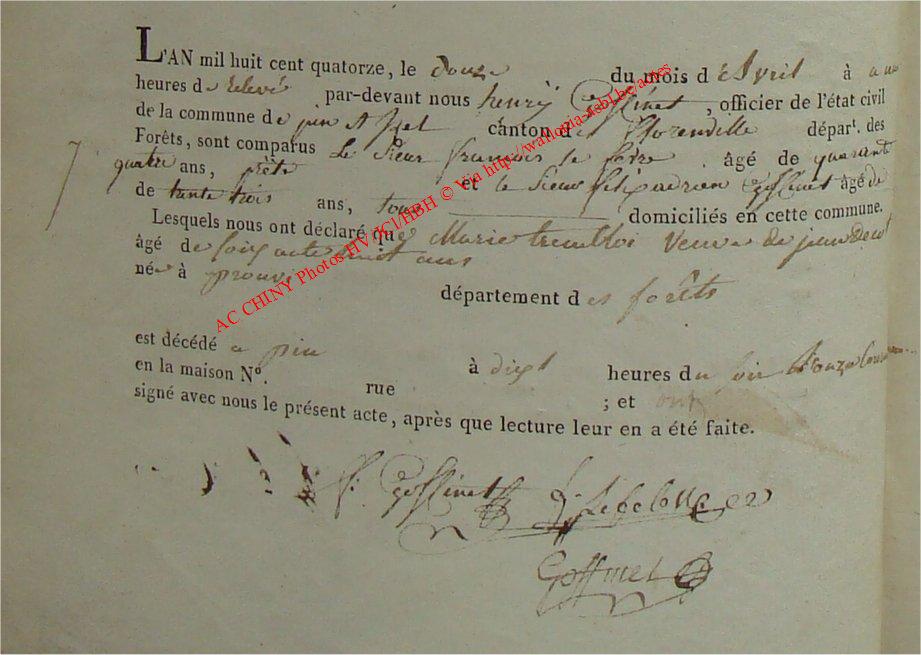 L'AN mil huit cent quatorze, le douze du mois d'Avril à une
heures de relevé par-devant nous henry Goffinet, officier de l'état civil
de la commune de pin canton de florenville, départ. des
Forêts, sont comparus Le Sieur françois le febre âgé de quarante
7 quatre ans, et le Sieur adrien Goffinet âgé de
de trante trois ans, tous domiciliés en cette commune.
Lesquels nous ont déclaré que Marie Veuve de jean
âgé de ans
née à prouvi département des forêts
est décédé a pin à dixt heures du soir
en la maison N°. rue ; et ont
signé avec nous le présent acte, après que lecture leur en a été faite.
Goffinet
Goffinet
AC CHINY Photos HV/JCl/HBH © Via http://wallonia-asbl.be/actes